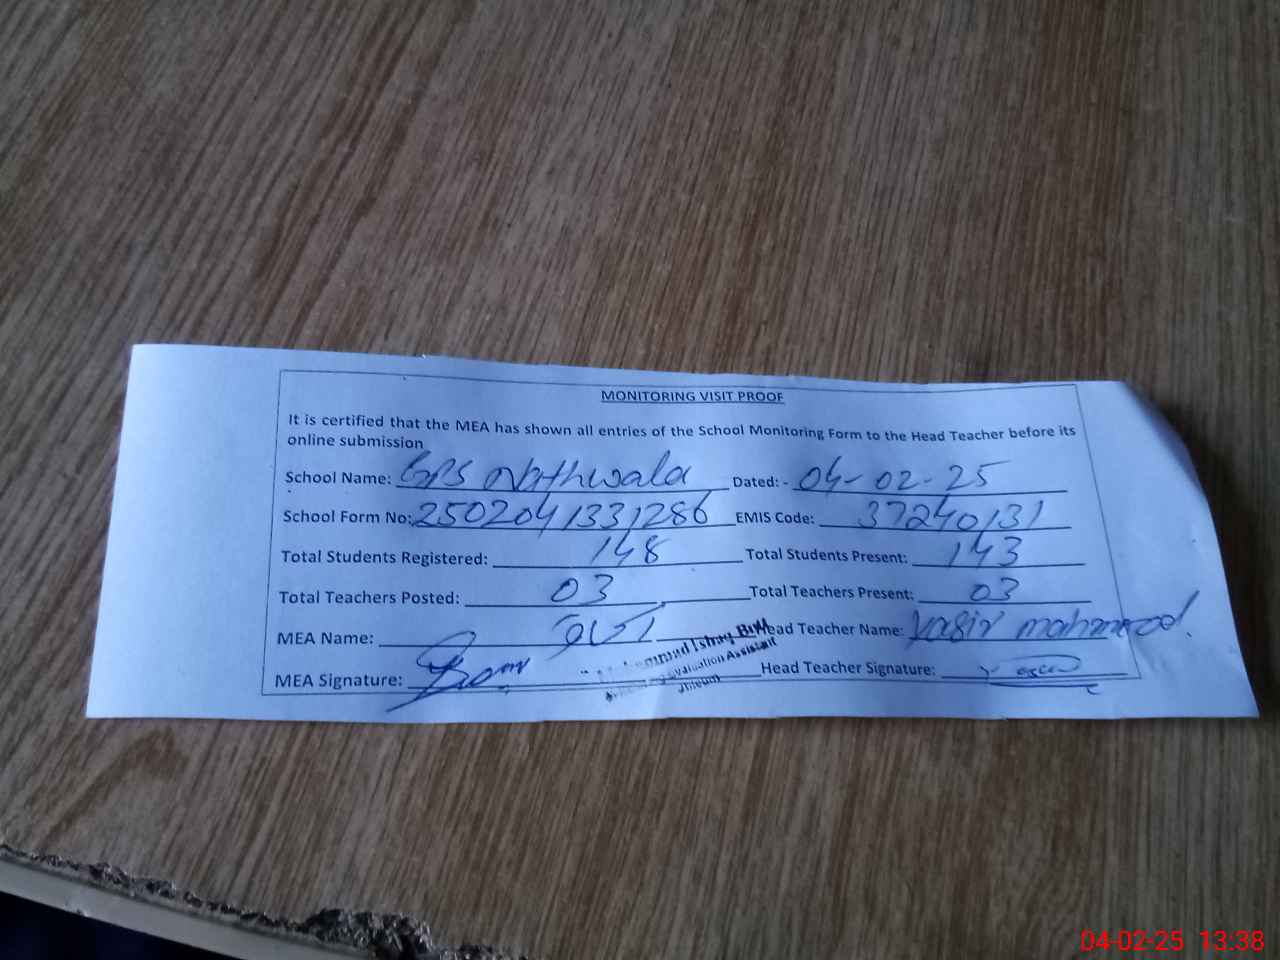 MONITORING VISIT PROOF
It is certified that the MEA has shown all entries of the School Monitoring Form to the Head Teacher before its
online submission
School Name: GPS Nathwala Dated: - 04-02-25
School Form No: 2502041331286 EMIS Code: 37240131
Total Students Registered: 148 Total Students Present: 143
Total Teachers Posted: 03 Total Teachers Present: 03
MEA Name: Head Teacher Name: Yasir mahmood.
Muhammad Ishaq Butt
Monitoring Evaluation Assistant
Jhelum
MEA Signature: Head Teacher Signature:
04-02-25 13:38